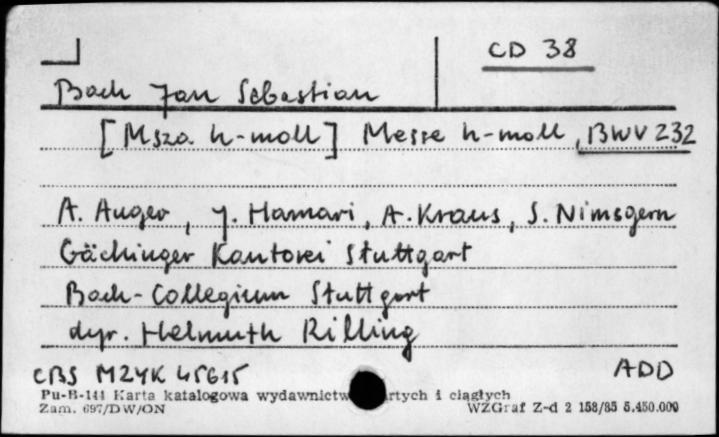 CD 38
Bach Jan Sebastian
[Msza h-moll] Messe h-moll, BWV 232
A. Auger, J. Hamari, A. Kraus, S. Nimsgern
Gächinger Kantorei Stuttgart
Bach-Collegium Stuttgart
dyr. Helmuth Rilling
CBS M2YK 45615
ADD
Pu-B-144 Karta katalogowa wydawnictw i ciągłych
Zam. 697/DW/ON
WZGraf Z-d 2 158/85 5.450.000